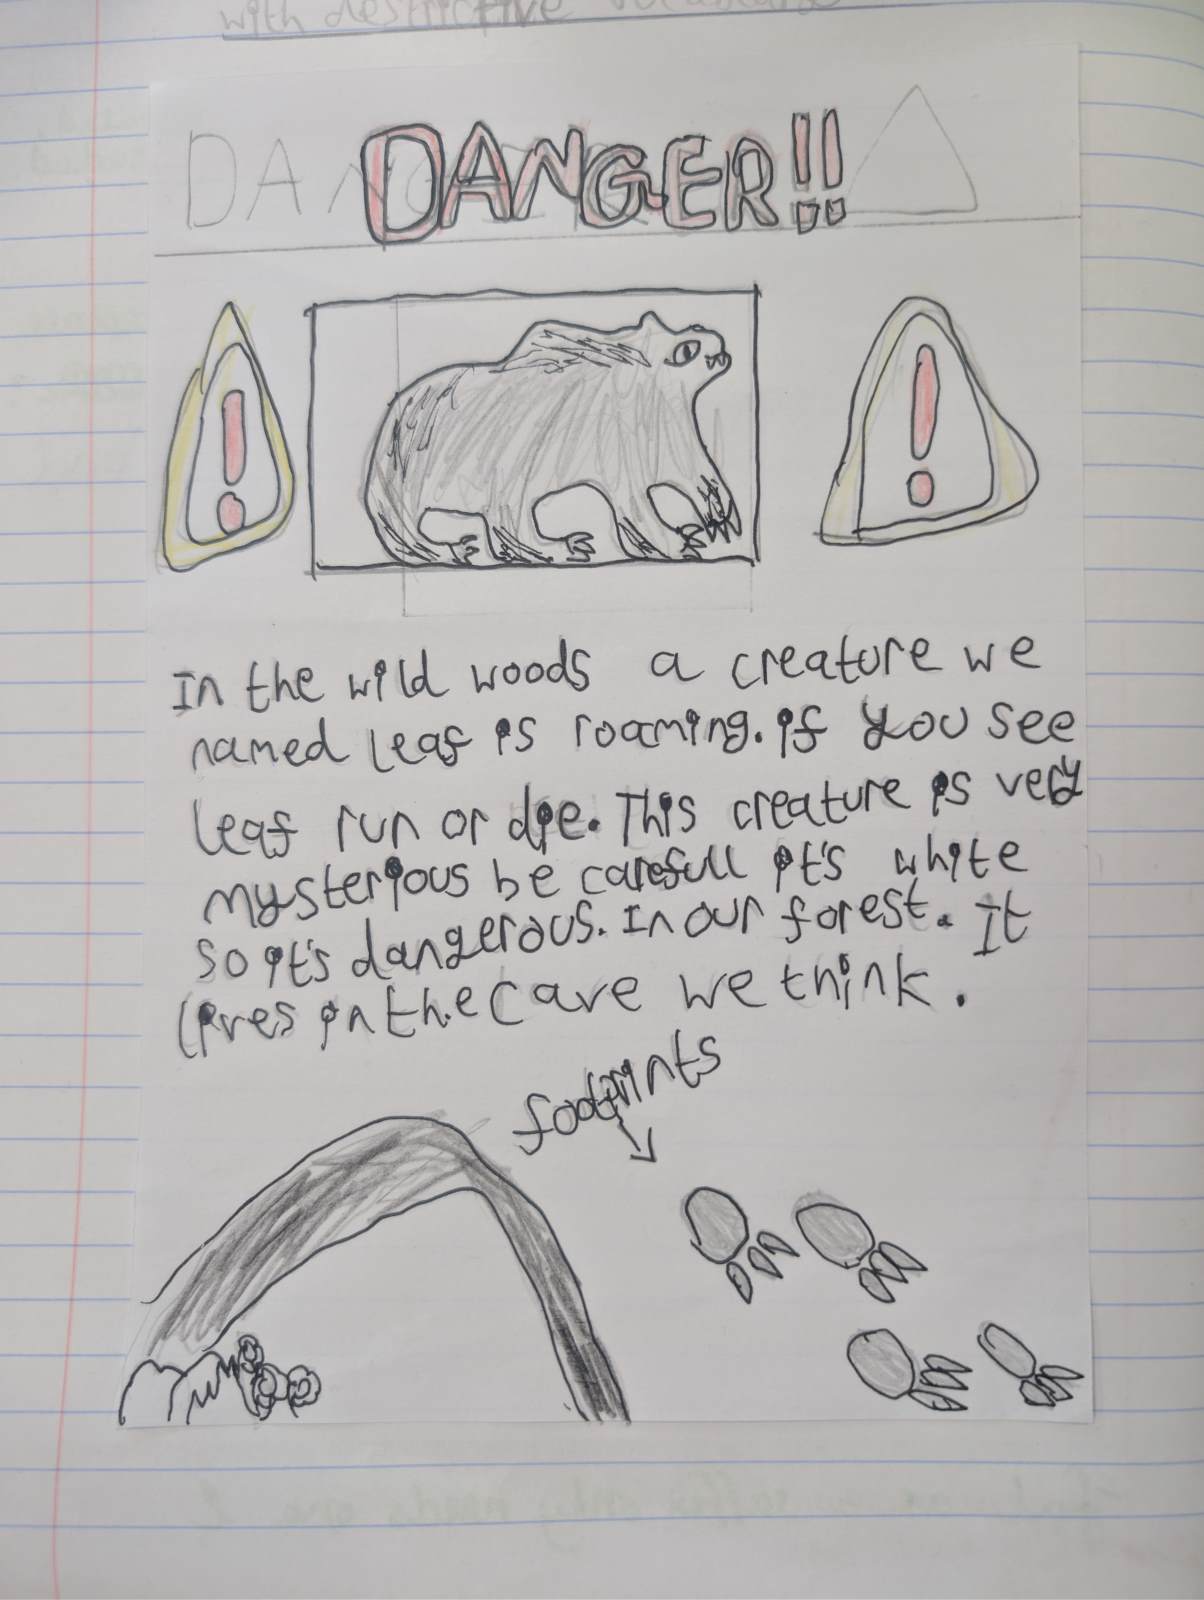 with destriptive
DANGER!!
In the wild woods a creature we
named leaf is roaming. if you see
leaf run or die. This creature is very
mysterious be carefull it's white
so it's dangerous. In our forest. It
lives in the cave we think.
footprints